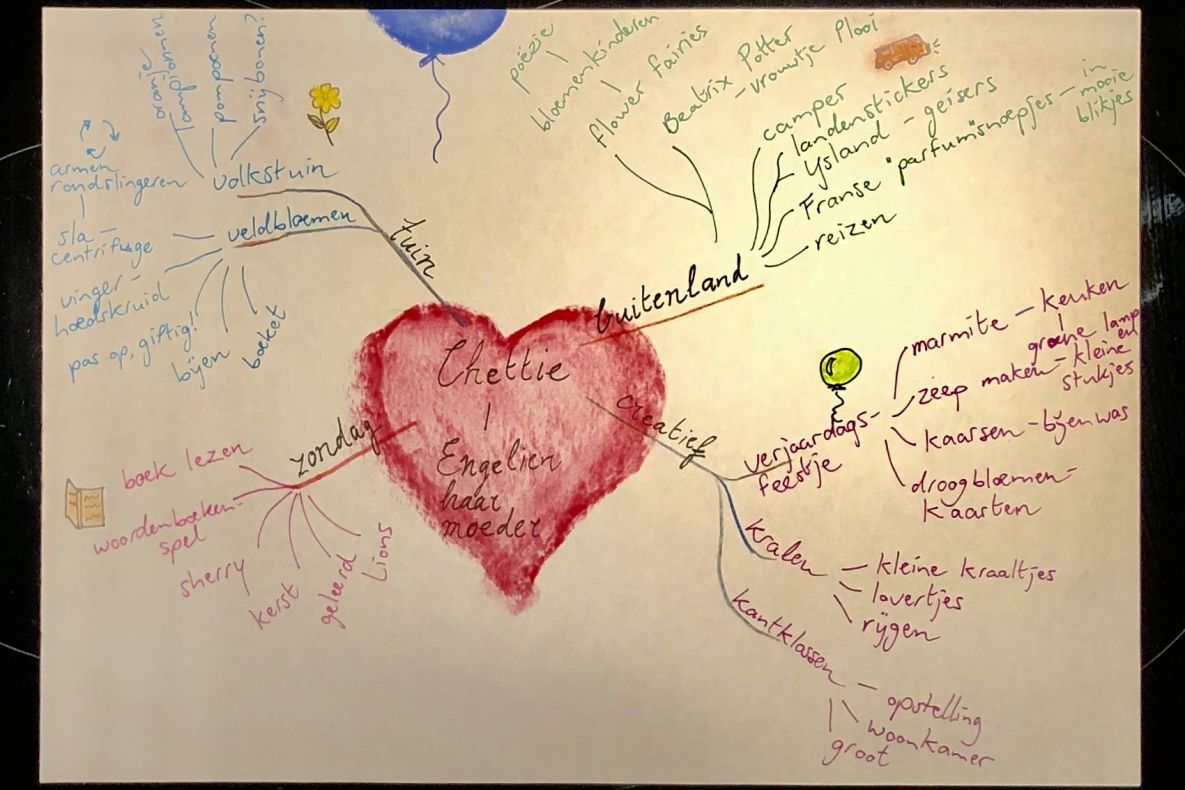 Chettie
Engelien
haar
moeder
tuin
volkstuin
oranje
Tampionnen
seringen
armen
rondslingeren
sla-
centrifuge
veldbloemen
vinger-
hoedskruid
pas op, giftig!
bijen
boeket
buitenland
poëzie
bloemenkinderen
flower fairies
Beatrix Potter
- vrouwtje Plooi
camper
landenstickers
Ysland - geisers
Franse "parfum"snoepjes - in
mooie
blikjes
reizen
creatief
verjaardags-
feestje
marmite - keuken
groene lamp
en
zeep maken - kleine
stukjes
kaarsen - bijenwas
droogbloemen-
kaarten
kralen
kleine kraaltjes
lovertjes
rijgen
kantklossen
opstelling
woonkamer
groot
zondag
boek lezen
woordenboeken-
spel
sherry
kerst
geleerd
Lions